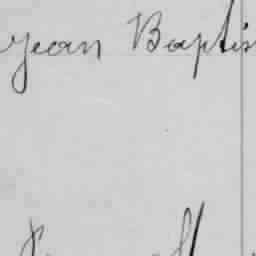 Jean Baptis